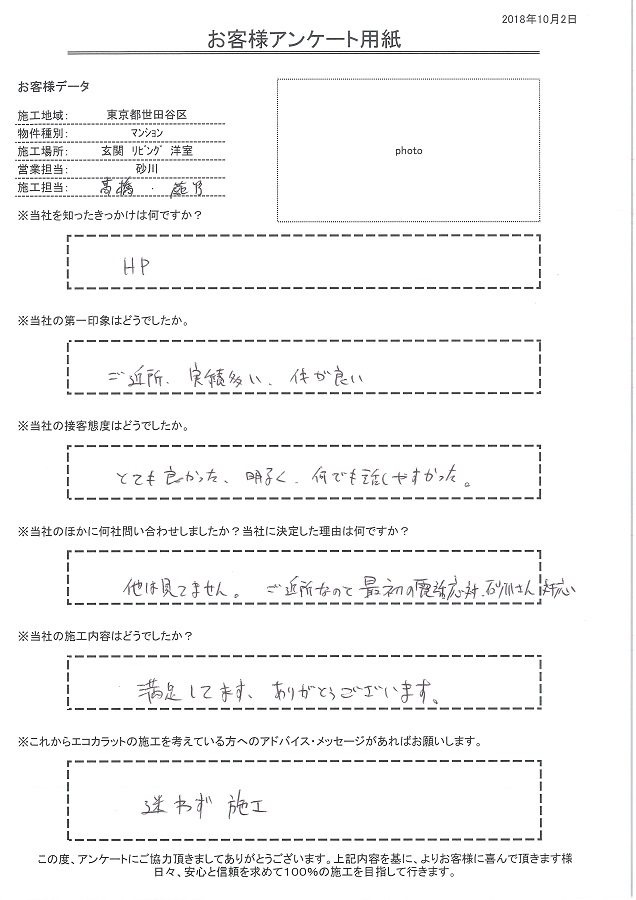 2018年10月2日
お客様アンケート用紙
お客様データ
施工地域: 東京都世田谷区
物件種別: マンション
施工場所: 玄関 リビング 洋室
営業担当: 砂川
施工担当: 高橋 ・
photo
※当社を知ったきっかけは何ですか？
HP
※当社の第一印象はどうでしたか。
ご近所、実績多い、 が良い
※当社の接客態度はどうでしたか。
とても良かった、明るく、何でも話しやすかった。
※当社のほかに何社問い合わせしましたか？当社に決定した理由は何ですか？
他は見てません。 ご近所なのと最初の電話応対、砂川さん対応
※当社の施工内容はどうでしたか？
満足してます、ありがとうございます。
※これからエコカラットの施工を考えている方へのアドバイス・メッセージがあればお願いします。
迷わず 施工
この度、アンケートにご協力頂きましてありがとうございます。上記内容を基に、よりお客様に喜んで頂きます様
日々、安心と信頼を求めて100%の施工を目指して行きます。